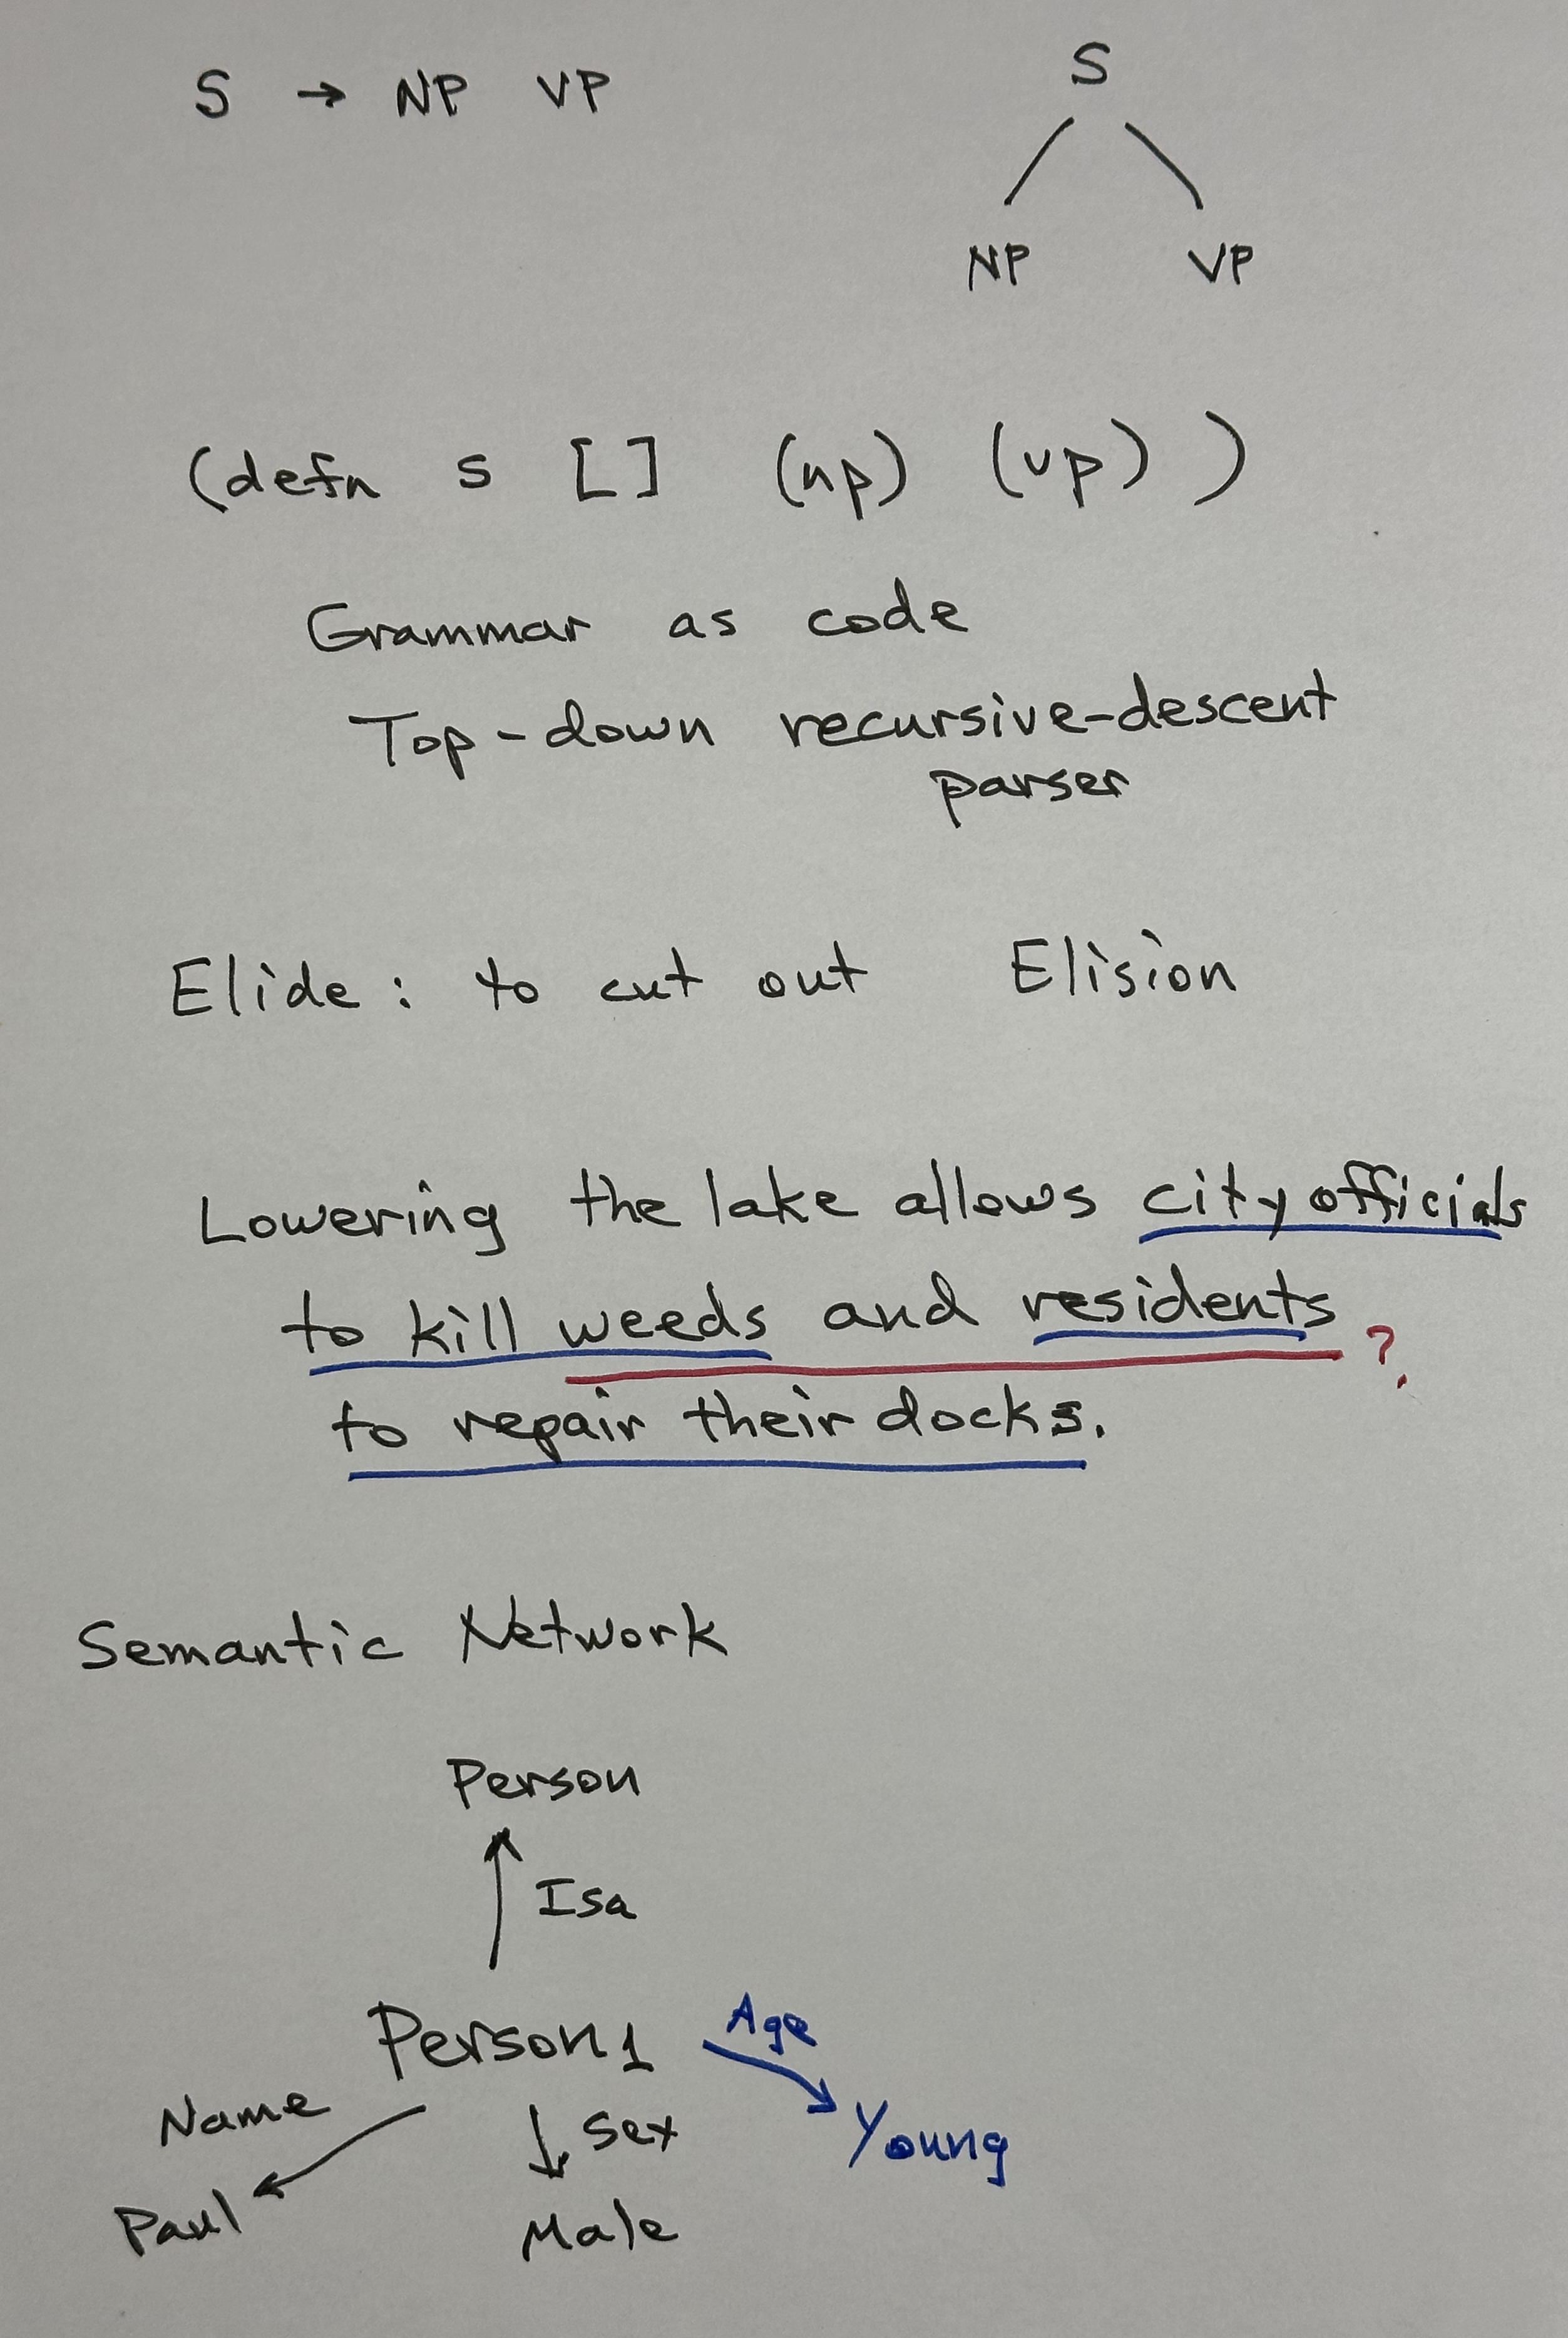 S → NP VP
S
NP VP
(defn s [] (np) (vp) )
Grammar as code
Top-down recursive-descent
parser
Elide: to cut out Elision
Lowering the lake allows city officials
to kill weeds and residents ?
to repair their docks.
Semantic Network
Person
Isa
Person1
Age
Name
Sex
Young
Paul
Male